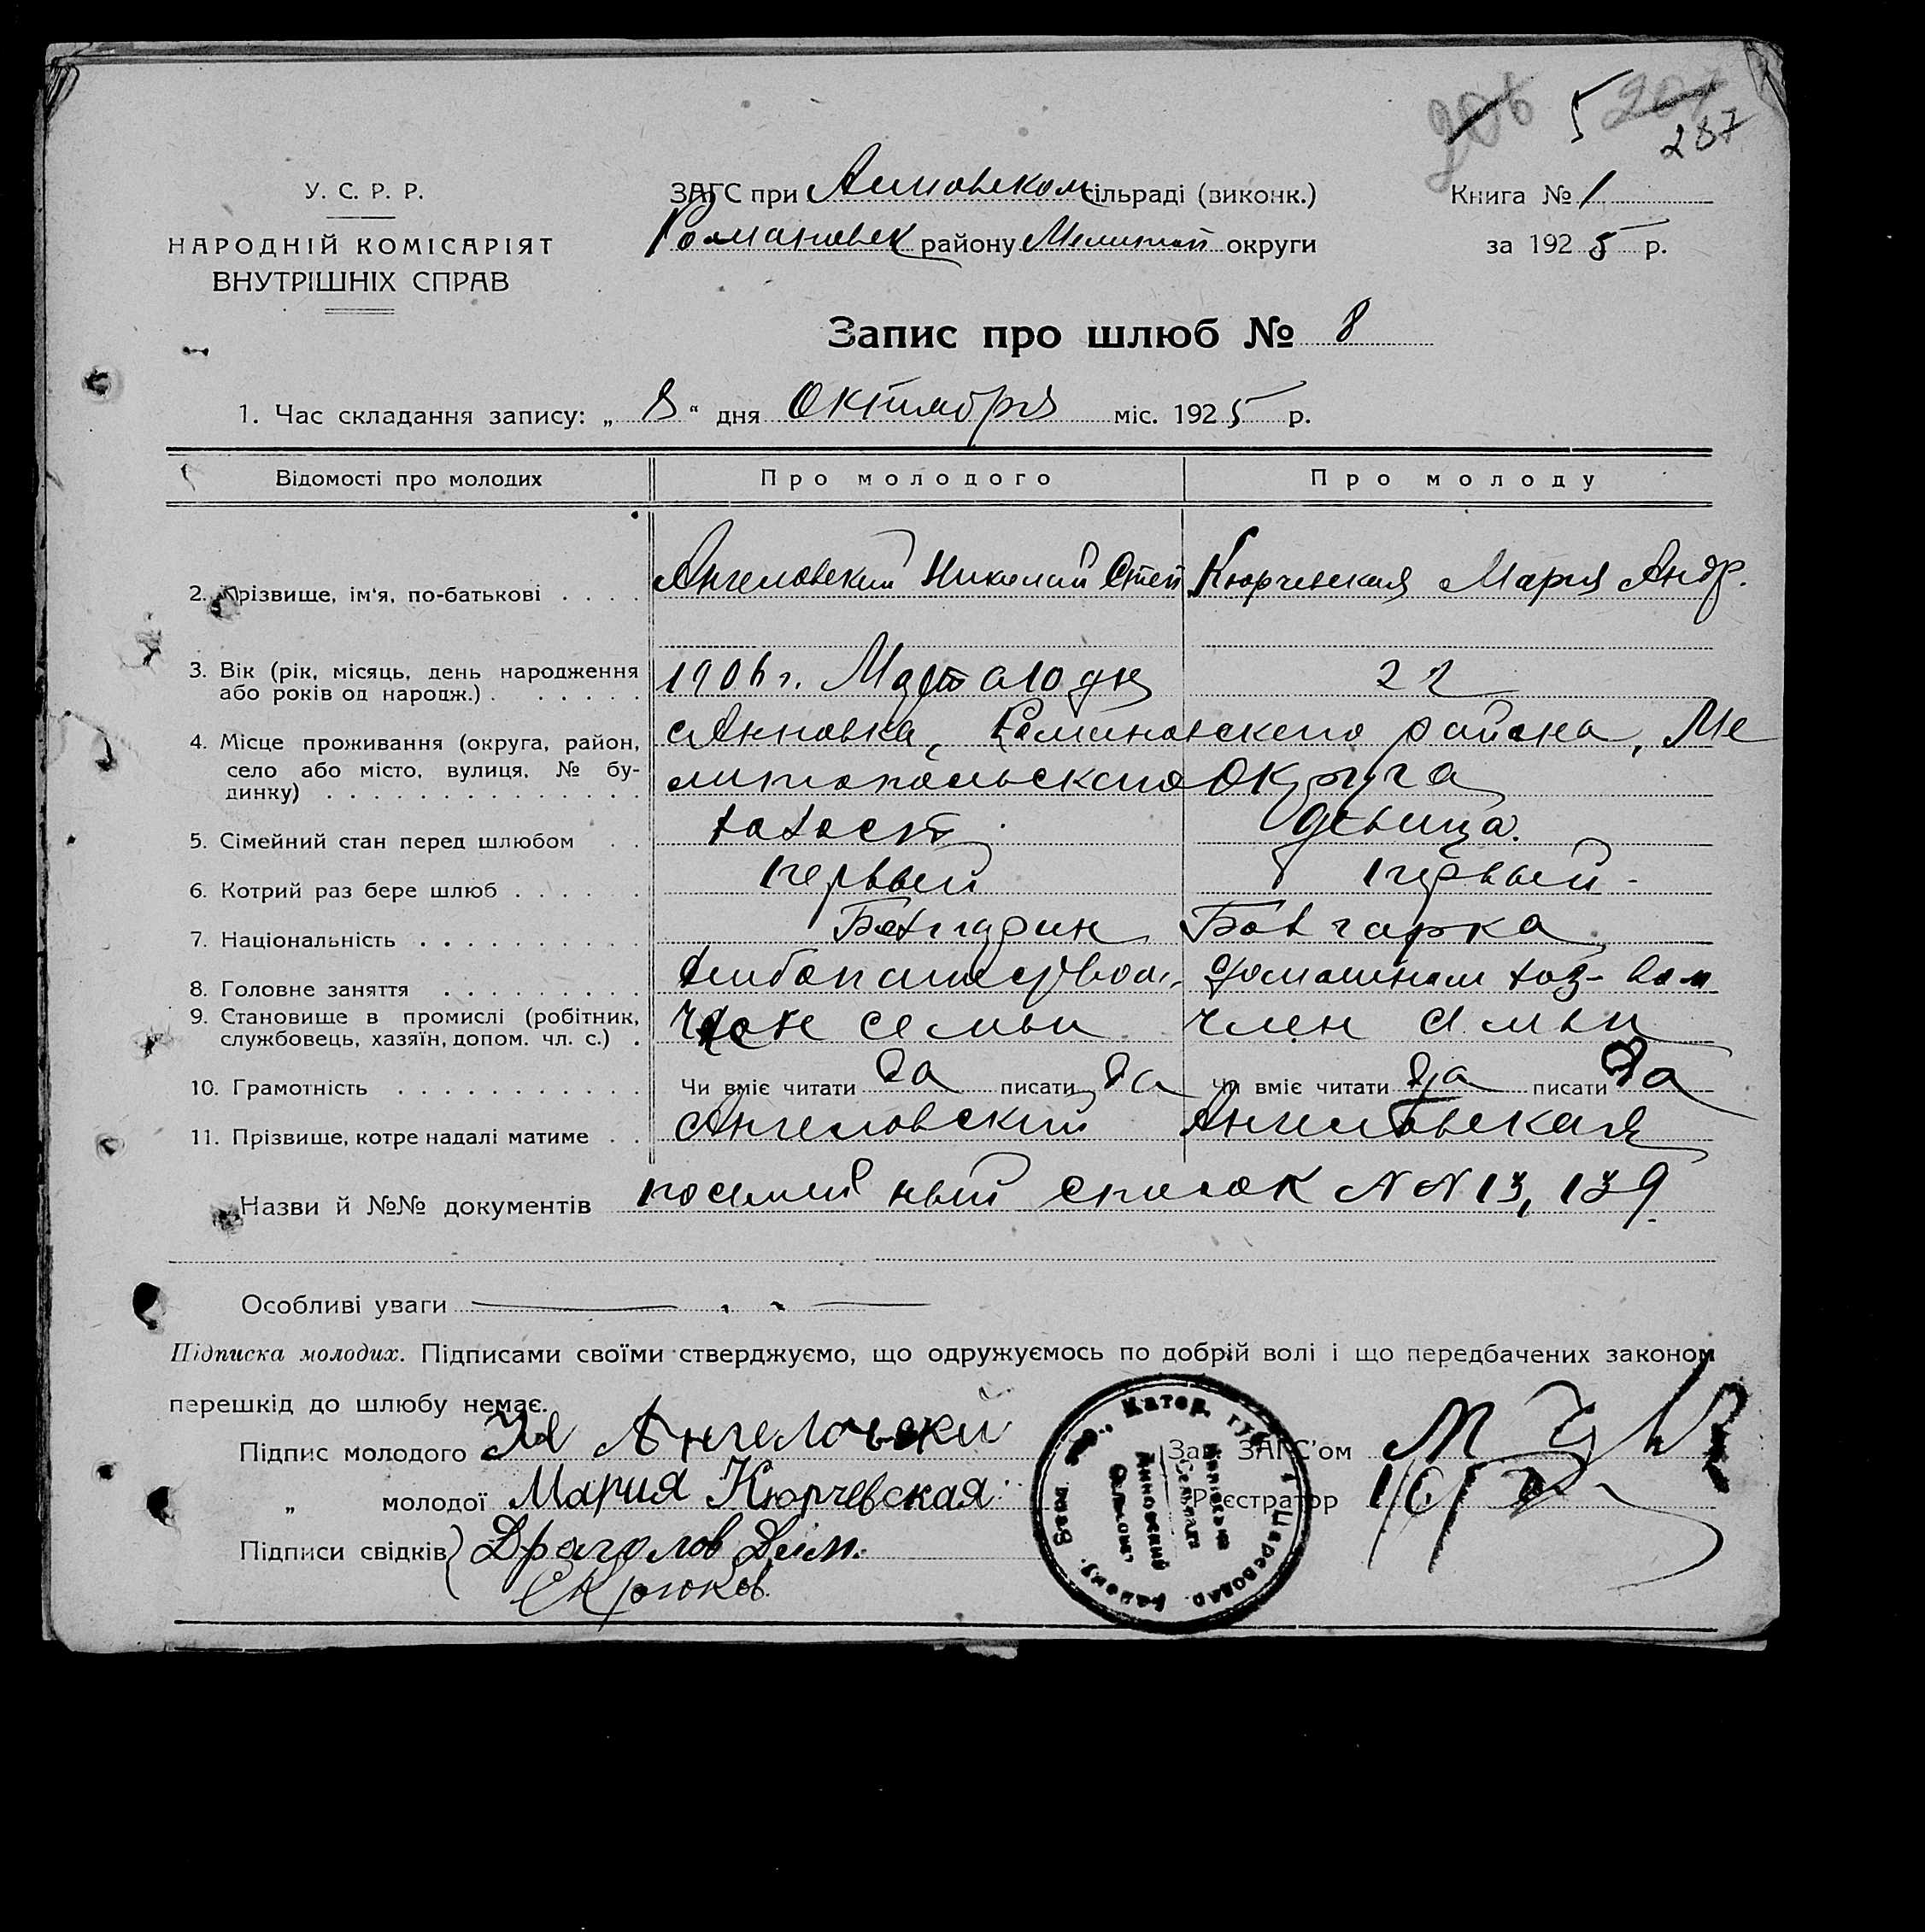 206 5 207
287
У. С. Р. Р.
НАРОДНІЙ КОМІСАРІЯТ
ВНУТРІШНІХ СПРАВ
ЗАГС при Анновском сільраді (виконк.)
Романовск району Мелитоп округи
Книга № 1
за 1925 р.
Запис про шлюб № 8
1. Час складання запису: „8“ дня Октября міс. 1925 р.
Відомості про молодих Про молодого Про молоду
2. Прізвище, ім'я, по-батькові Ангеловский Николай Степ Кюрчевская Мария Андр.
3. Вік (рік, місяць, день народження
або років од народж.) 1906 г. Марта 10 дня 22
4. Місце проживання (округа, район,
село або місто, вулиця, № бу-
динку)
с Анновка, Романовского района, Ме
литопольского Округа
5. Сімейний стан перед шлюбом холост девица.
6. Котрий раз бере шлюб первый первый
7. Національність Болгарин Болгарка
8. Головне заняття хлебопашество домашнем хоз-вом
9. Становище в промислі (робітник,
службовець, хазяїн, допом. чл. с.) Член семьи член семьи
10. Грамотність Чи вміє читати да писати да Чи вміє читати да писати да
11. Прізвище, котре надалі матиме Ангеловский Ангеловская
Назви й №№ документів посемейный список NN 13, 139.
Особливі уваги
Підписка молодих. Підписами своїми стверджуємо, що одружуємось по добрій волі і що передбачених законом
перешкід до шлюбу немає.
Підпис молодого Ангеловски
„ молодої Мария Кюрчевская
Підписи свідків Драголов Дим.
Крюков
Зав. ЗАГС'ом
Реєстратор
Катер. губ. Цареводар. району
Анновский
Сельсовет